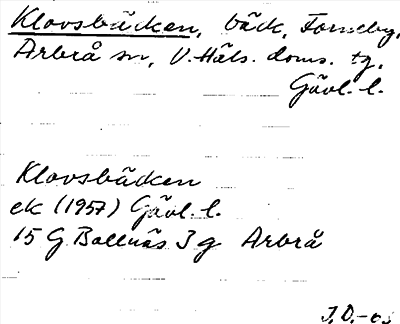 Klovsbäcken, bäck, Forneby,
Arbrå sn, V. Häls. doms. tg,
Gävl. l.
Klovsbäcken
ek (1957) Gävl. l.
15 G Bollnäs 3 g Arbrå
J.D.-03